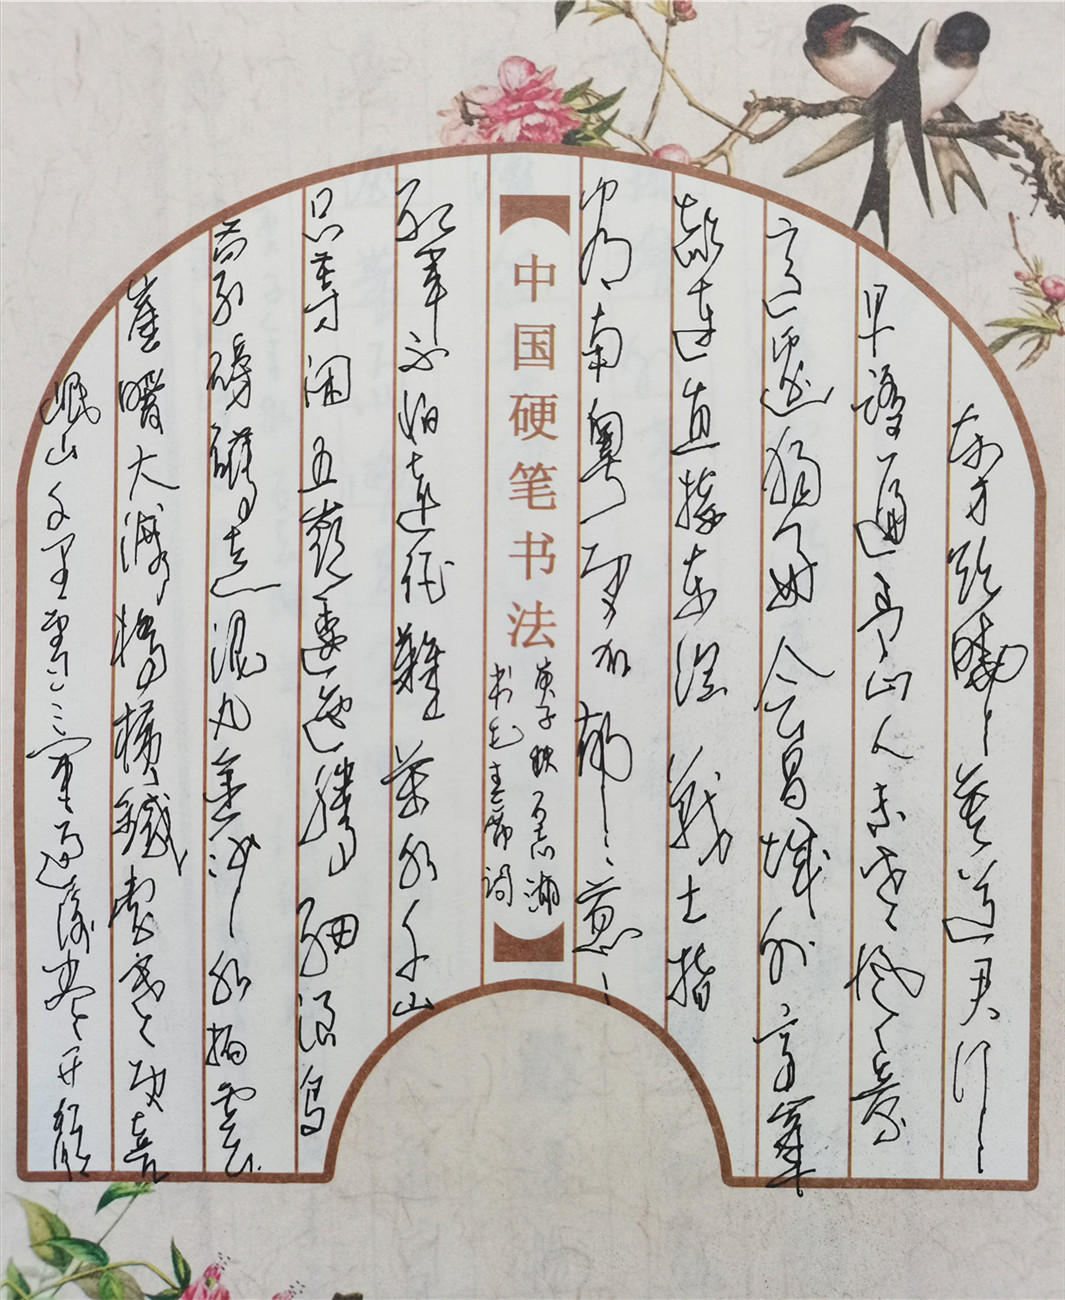 东方欲曉莫道君行
早踏遍青山人未老风景
这边独好会昌城外高峯
颠连直接东溟战士指
看南粤更加郁郁葱葱
中国硬笔书法
庚子秋
书毛主席词
红军不怕远征難萬水千山
只等闲五嶺逶迤腾细浪乌
蒙磅礴走泥丸金沙水拍雲
崖暖大渡桥横鐵索寒更喜
岷山千里雪三军过后尽开颜